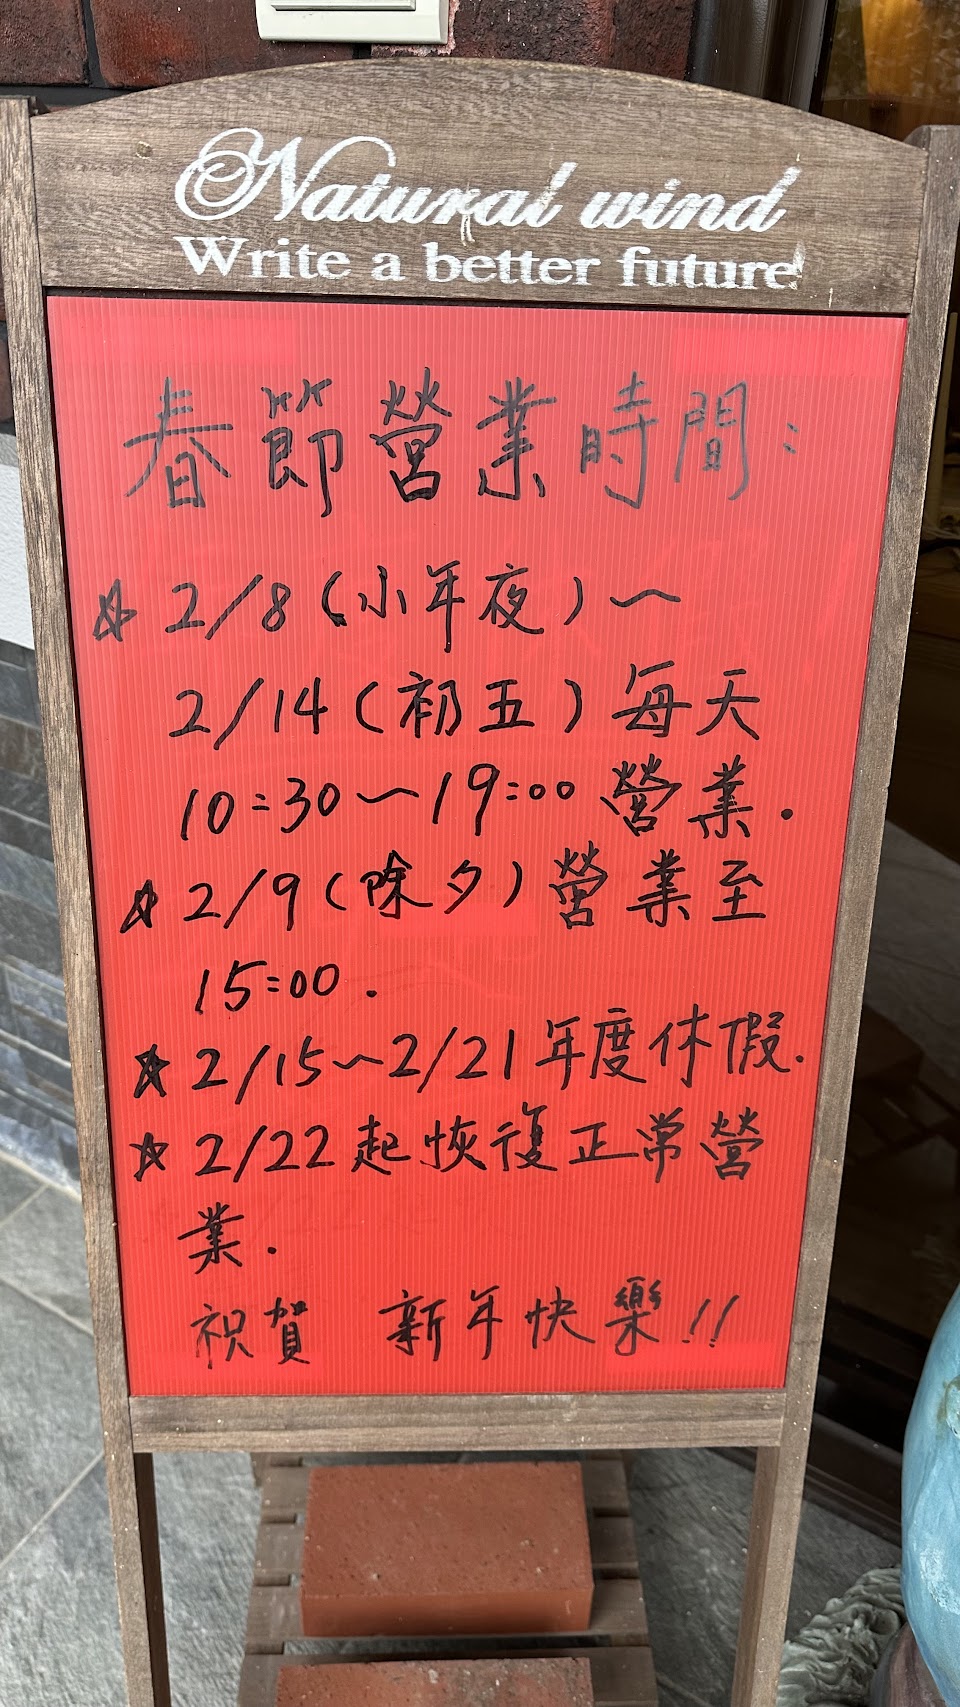 Natural wind
Write a better future
春節營業時間：
☆2/8(小年夜)～
2/14(初五)每天
10:30～19:00營業.
☆2/9(除夕)營業至
15:00.
☆2/15～2/21年度休假.
☆2/22起恢復正常營
業.
祝賀 新年快樂!!